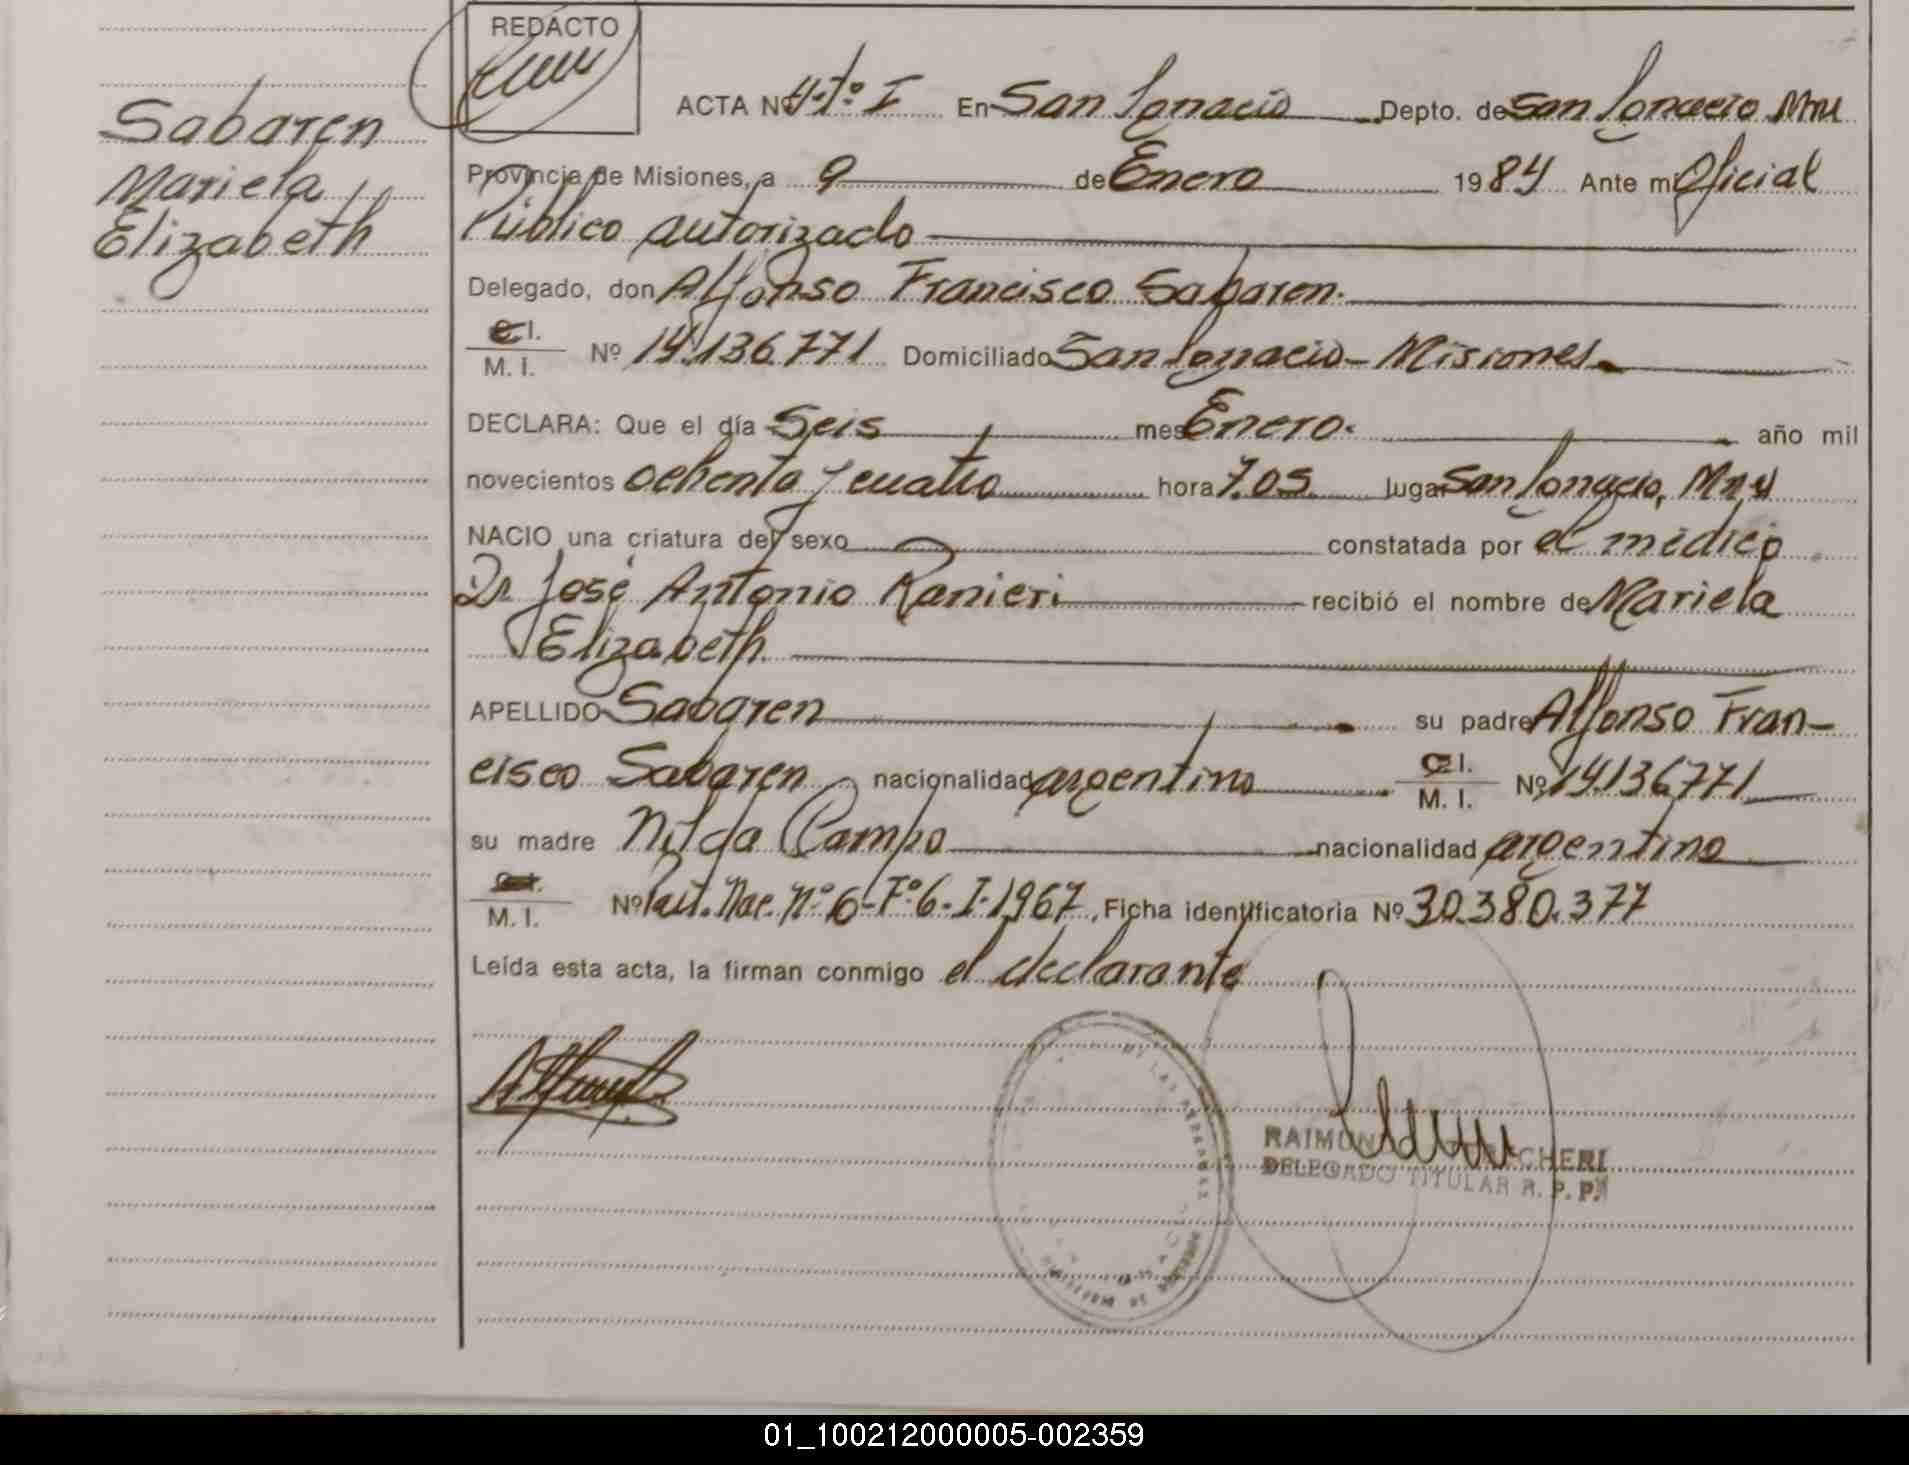 REDACTO
Sabaren
Mariela
Elizabeth
ACTA Nº 4-Tº I En San Ignacio Depto. de San Ignacio Mns
Provincia de Misiones, a 9 de Enero 1984 Ante mi Oficial
Público autorizado
Delegado, don Alfonso Francisco Sabaren.
C.I.
M. I. Nº 14.136.771 Domiciliado San Ignacio - Misiones
DECLARA: Que el día Seis mes Enero. año mil
novecientos ochenta y cuatro hora 7.05 lugar San Ignacio, Mns
NACIO una criatura del sexo constatada por el médico
Dr José Antonio Ranieri recibió el nombre de Mariela
Elizabeth.
APELLIDO Sabaren su padre Alfonso Fran-
cisco Sabaren nacionalidad argentino C.I. M. I. Nº 14.136.771
su madre Nilda Campo nacionalidad argentino
M. I. Nº Part. Nac. Nº 6-Fº 6-I-1967, Ficha identificatoria Nº 30.380.377
Leída esta acta, la firman conmigo el declarante
DE LAS PERSONAS
DELEGADO TITULAR R. P. P.
01_100212000005-002359